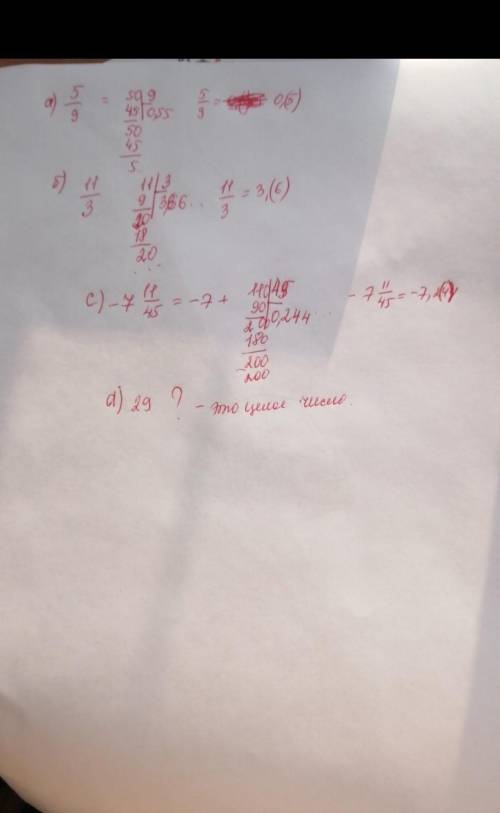 а) 5/9 = 50 | 9 5/9 = 0,(5)
45 | 0,55
50
45
5
б) 11/3 11 | 3 11/3 = 3,(6)
9 | 3,66..
20
18
20
...
c) -7 11/45 = -7 + 110 | 45 -7 11/45 = -7,2(4)
90 | 0,244...
200
180
200
200
d) 29 ? - это целое число.